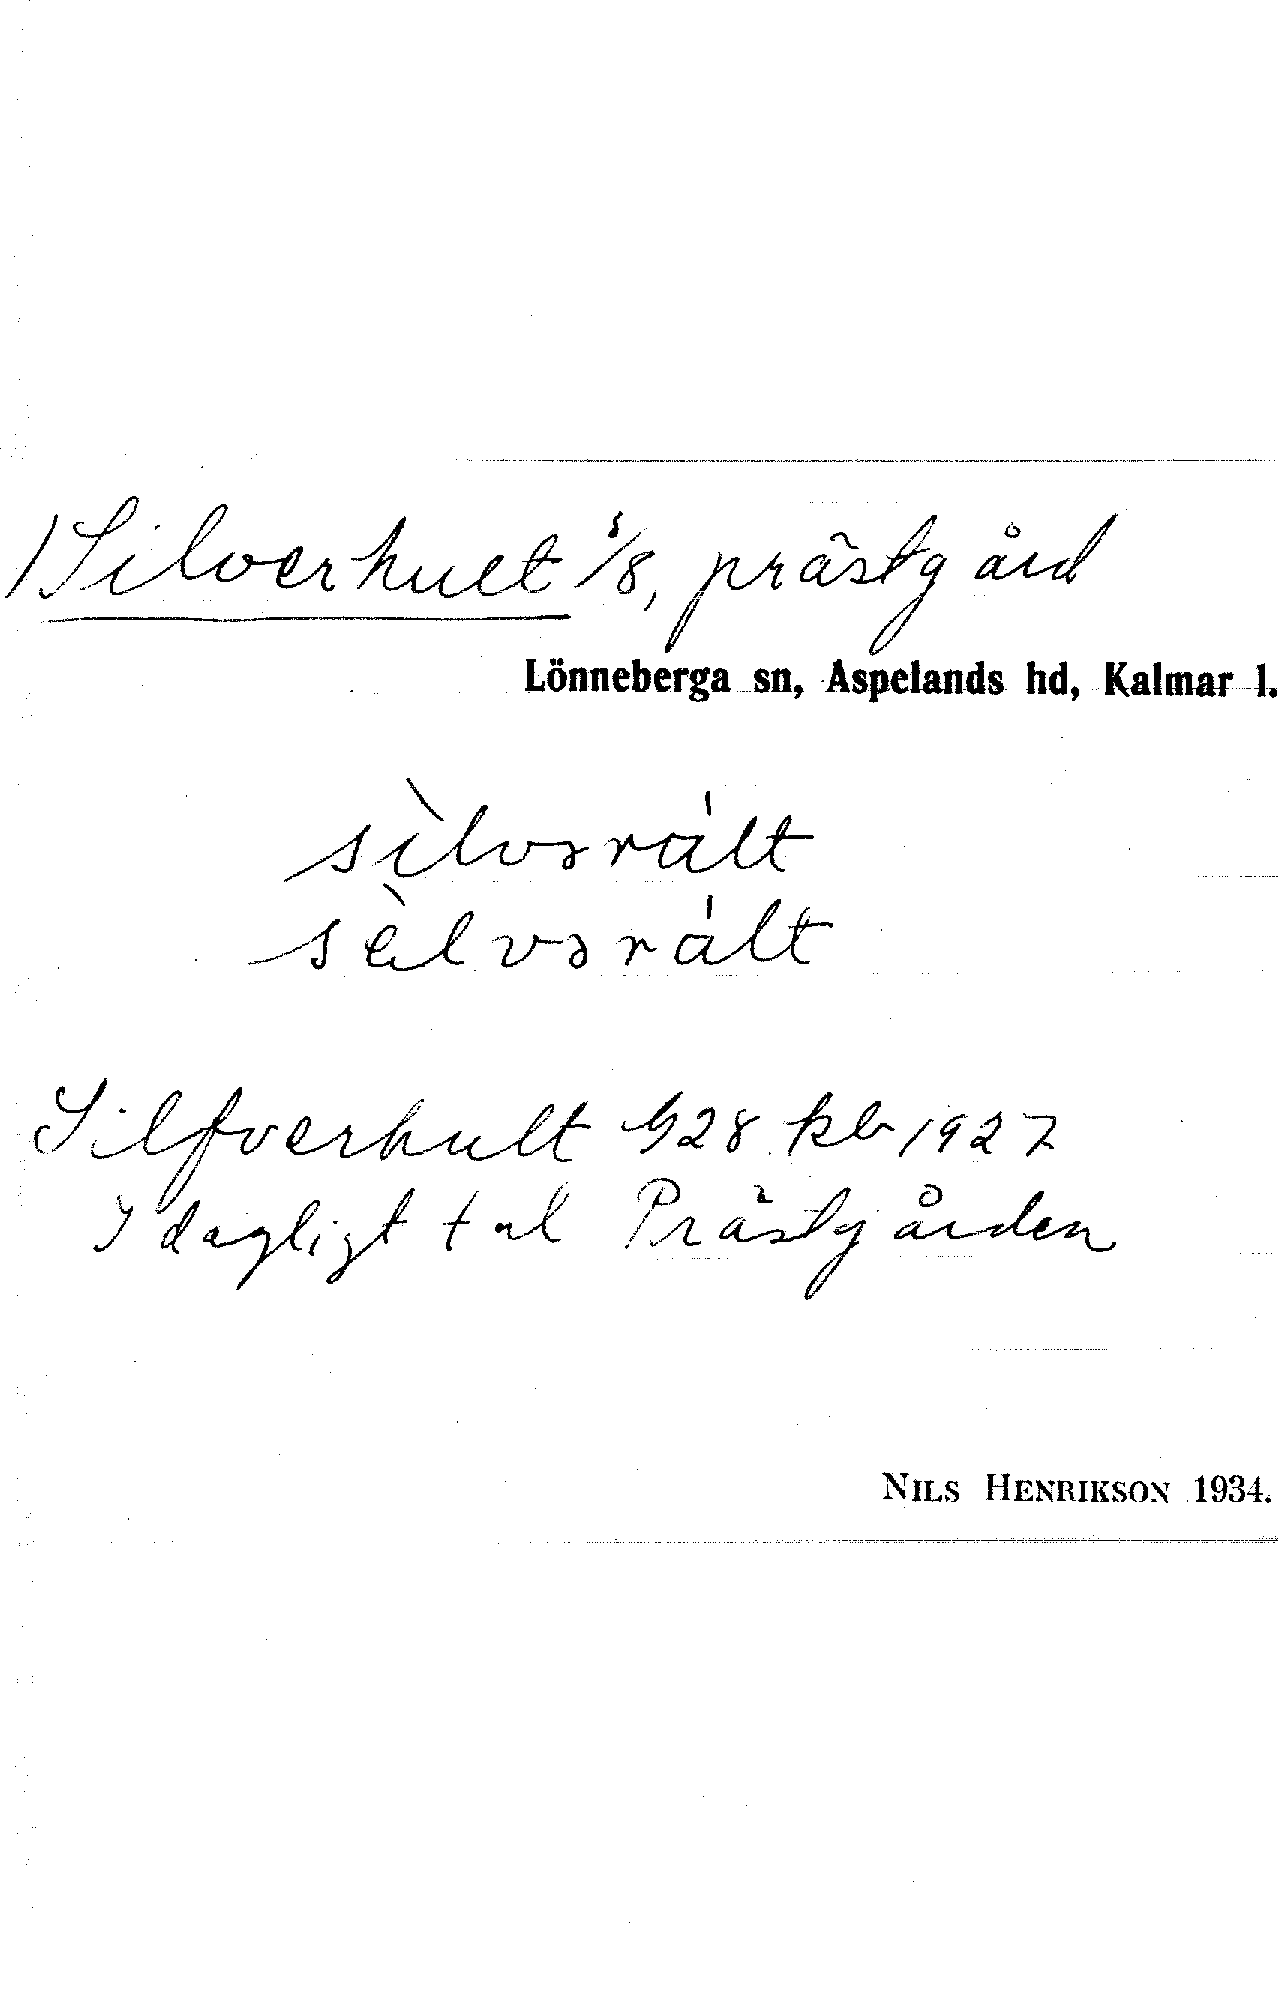 1 Silverhult 1/8, prästgård
Lönneberga sn, Aspelands hd, Kalmar l.
sìlvərált
sèlvərált
Silfverhult G28 kb 1927
I dagligt tal Prästgården
NILS HENRIKSON 1934.